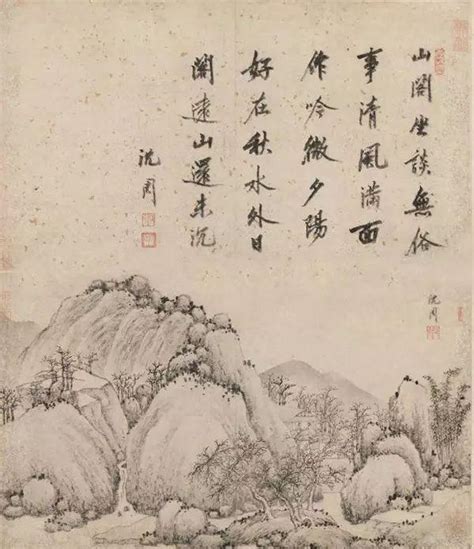 山閣坐談無俗
事清風滿面
作吟微夕陽
好在秋水外日
闊遠山還未沉
沈周
沈周